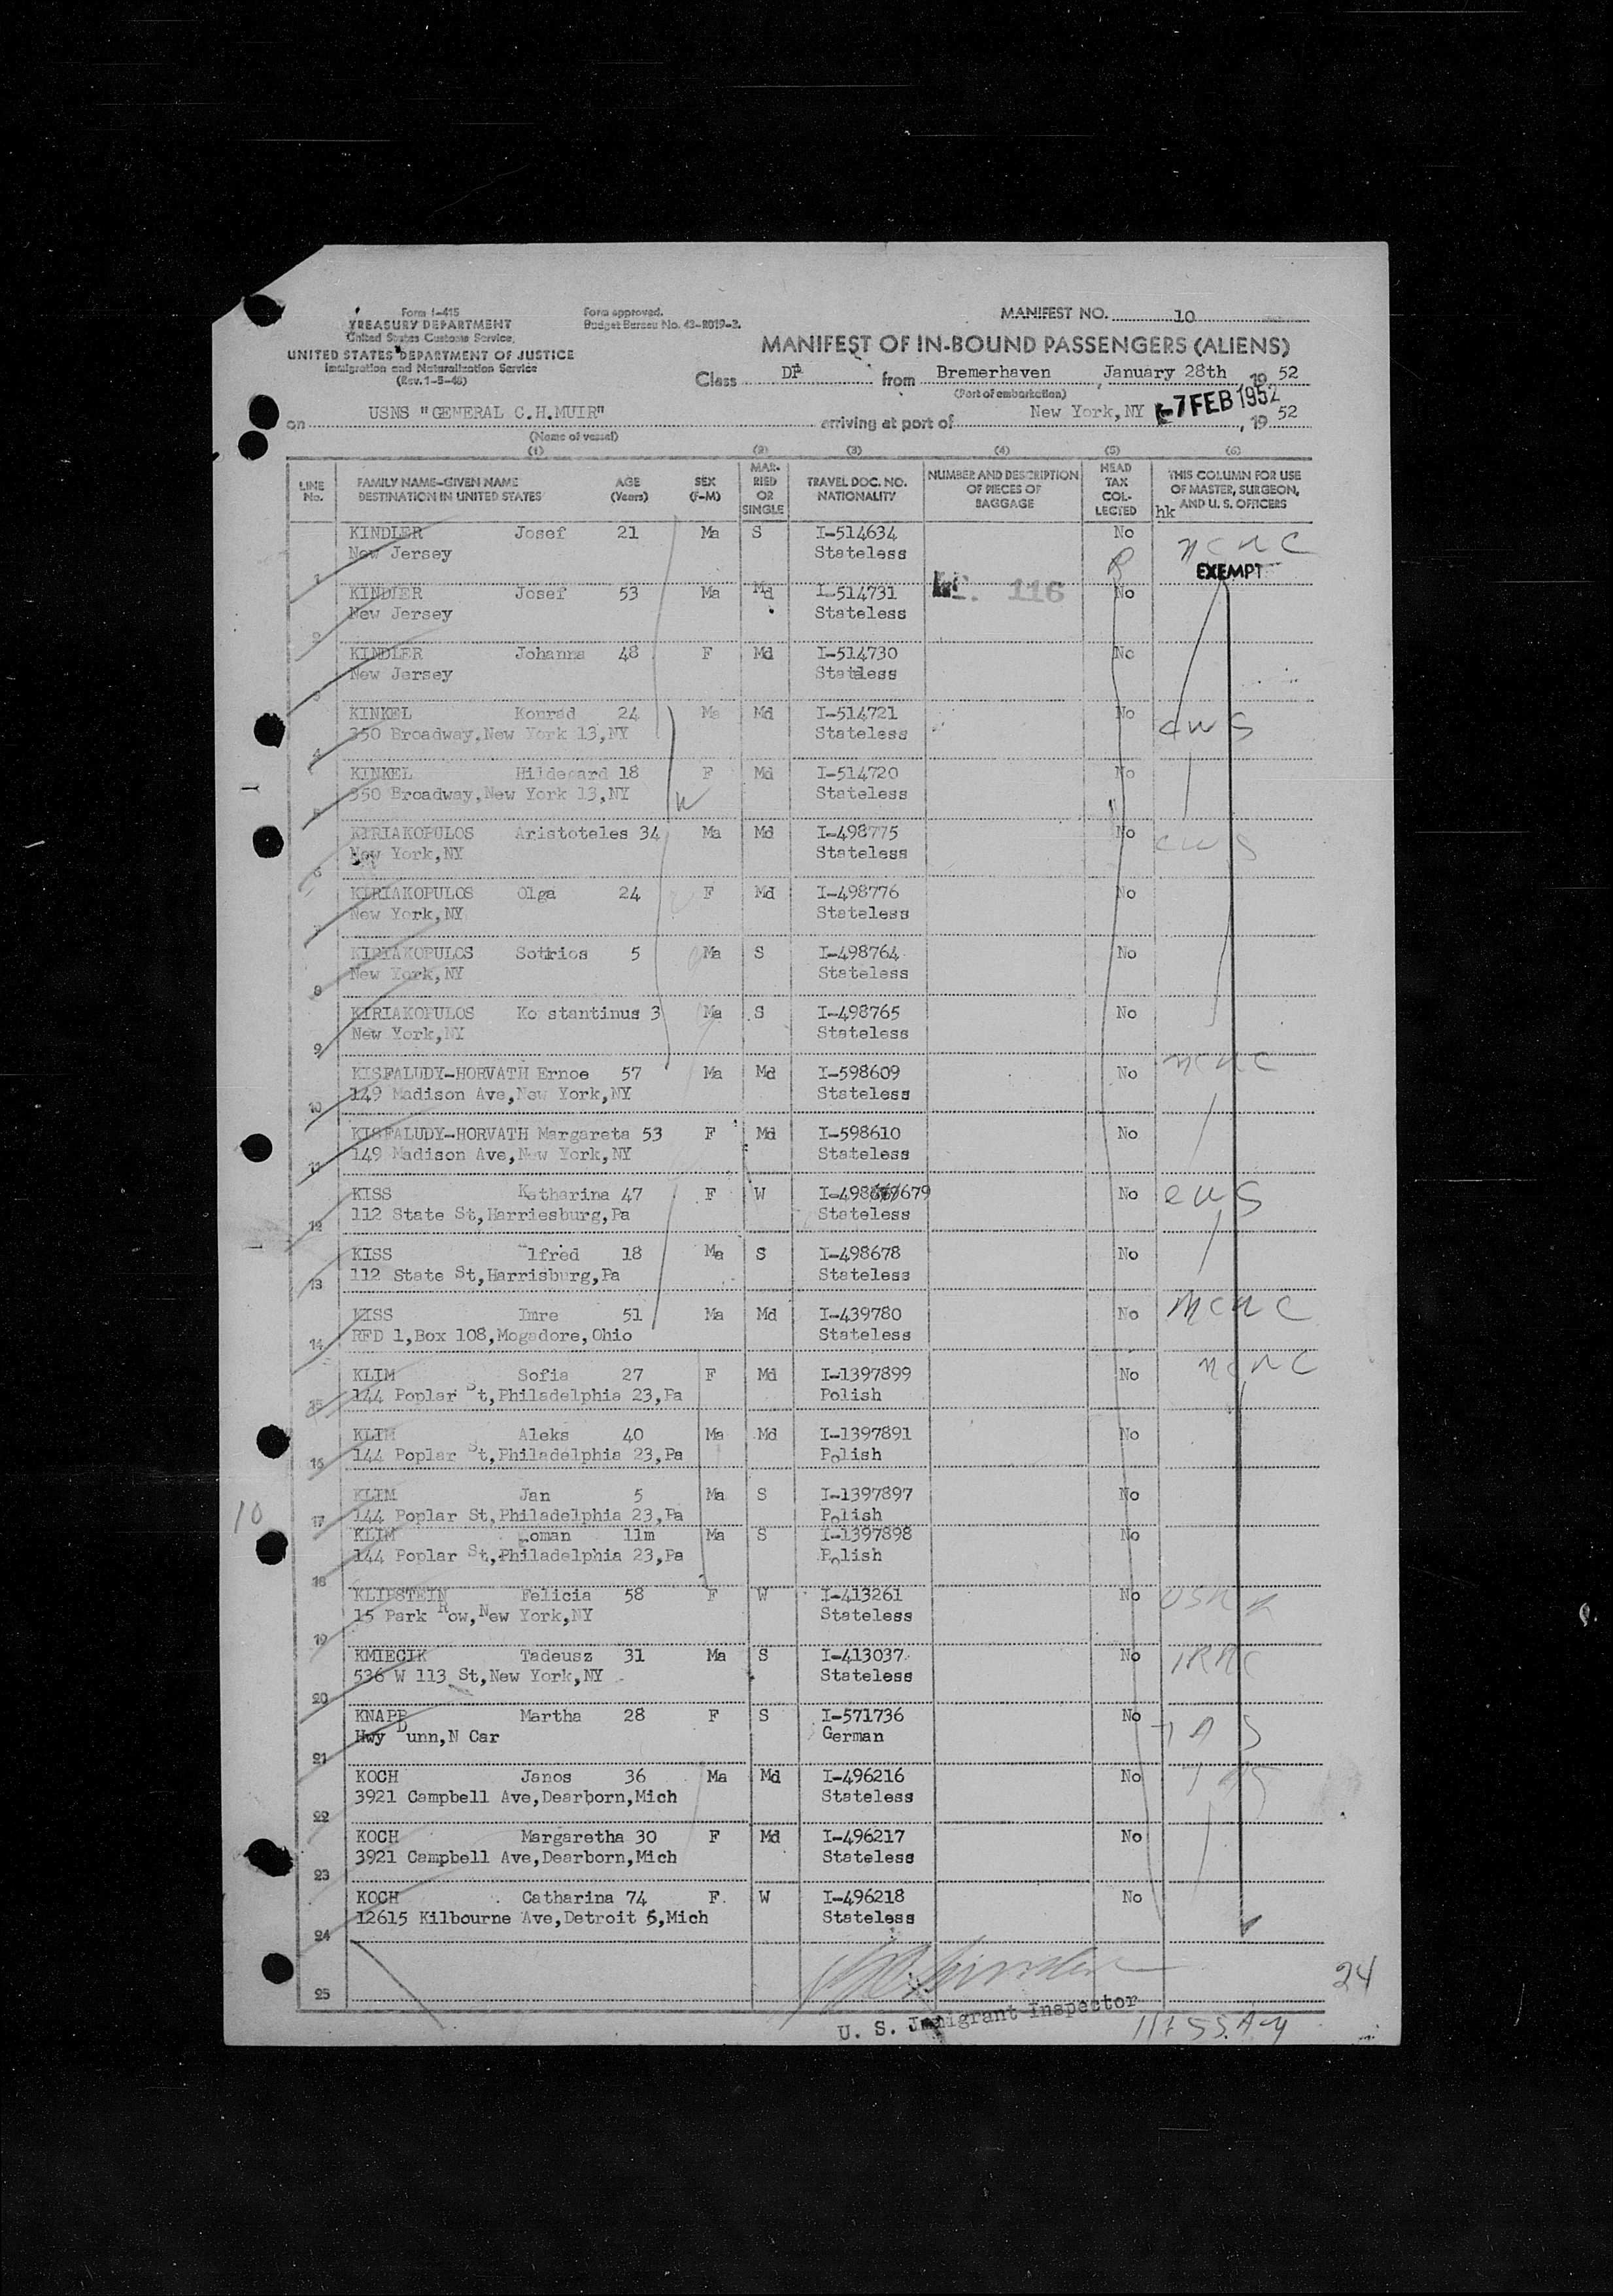 Form I-415
TREASURY DEPARTMENT
United States Customs Service,
UNITED STATES DEPARTMENT OF JUSTICE
Immigration and Naturalization Service
(Rev. 1-5-48)
Form approved.
Budget Bureau No. 43-R019-2.
MANIFEST NO. 10
MANIFEST OF IN-BOUND PASSENGERS (ALIENS)
Class DP from Bremerhaven, January 28th, 19 52
(Port of embarkation)
on USNS "GENERAL C.H.MUIR" arriving at port of New York, NY -7 FEB 1952, 19 52
(Name of vessel)
(1) (2) (3) (4) (5) (6)
LINE No. FAMILY NAME-GIVEN NAME DESTINATION IN UNITED STATES AGE (Years) SEX (F-M) MARRIED OR SINGLE TRAVEL DOC. NO. NATIONALITY NUMBER AND DESCRIPTION OF PIECES OF BAGGAGE HEAD TAX COLLECTED THIS COLUMN FOR USE OF MASTER, SURGEON, AND U. S. OFFICERS
hk
KINDLER Josef 21 Ma S I-514634 No NCWC
1 New Jersey Stateless EXEMPT
KINDLER Josef 53 Ma Md I-514731 116 No
2 New Jersey Stateless
KINDLER Johanna 48 F Md I-514730 No
3 New Jersey Stateless
KINKEL Konrad 24 Ma Md I-514721 No CWS
4 350 Broadway,New York 13,NY Stateless
KINKEL Hildegard 18 F Md I-514720 No
5 350 Broadway,New York 13,NY Stateless
KIRIAKOPULOS Aristoteles 34 Ma Md I-498775 No CWS
6 New York,NY Stateless
KIRIAKOPULOS Olga 24 F Md I-498776 No
7 New York,NY Stateless
KIRIAKOPULOS Sotrios 5 Ma S I-498764 No
8 New York,NY Stateless
KIRIAKOPULOS Ko stantinus 3 Ma S I-498765 No
9 New York,NY Stateless
KISFALUDY-HORVATH Ernoe 57 Ma Md I-598609 No NCWC
10 149 Madison Ave,New York,NY Stateless
KISFALUDY-HORVATH Margareta 53 F Md I-598610 No
11 149 Madison Ave,New York,NY Stateless
KISS Katharina 47 F W I-498679 No CWS
12 112 State St,Harriesburg,Pa Stateless
KISS lfred 18 Ma S I-498678 No
13 112 State St,Harrisburg,Pa Stateless
KISS Imre 51 Ma Md I-439780 No NCWC
14 RFD 1,Box 108,Mogadore,Ohio Stateless
KLIM Sofia 27 F Md I-1397899 No NCWC
15 144 Poplar St,Philadelphia 23,Pa Polish
KLIM Aleks 40 Ma Md I-1397891 No
16 144 Poplar St,Philadelphia 23,Pa Polish
KLIM Jan 5 Ma S I-1397897 No
17 144 Poplar St,Philadelphia 23,Pa Polish
KLIM Roman 11m Ma S I-1397898 No
18 144 Poplar St,Philadelphia 23,Pa Polish
KLIPSTEIN Felicia 58 F W I-413261 No
19 15 Park Row,New York,NY Stateless
KMIECIK Tadeusz 31 Ma S I-413037 No IRRC
20 536 W 113 St,New York,NY Stateless
KNAPP Martha 28 F S I-571736 No
21 Hwy Dunn,N Car German
KOCH Janos 36 Ma Md I-496216 No
22 3921 Campbell Ave,Dearborn,Mich Stateless
KOCH Margaretha 30 F Md I-496217 No
23 3921 Campbell Ave,Dearborn,Mich Stateless
KOCH Catharina 74 F W I-496218 No
24 12615 Kilbourne Ave,Detroit 5,Mich Stateless
25
10
24
U. S. Immigrant Inspector